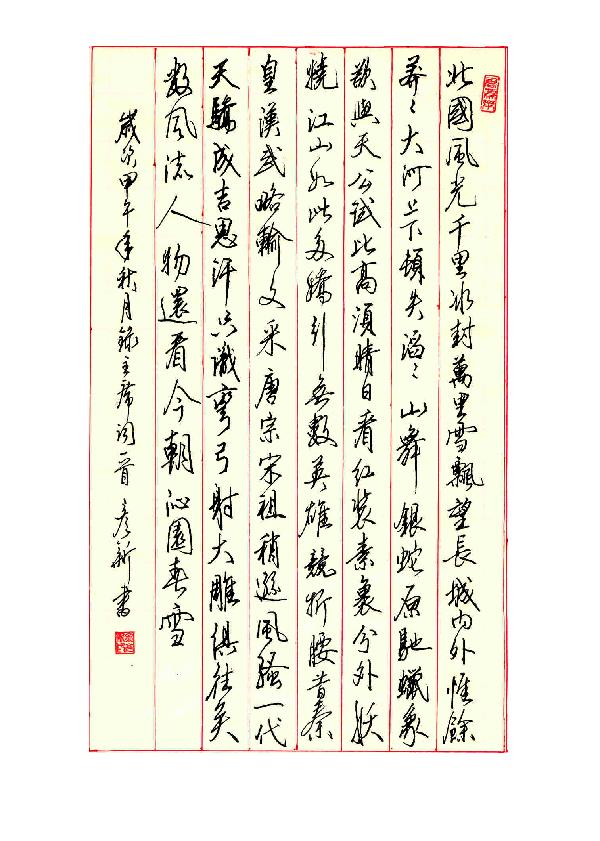 北國風光千里冰封萬里雪飄望長城内外惟餘
莽〻大河上下頓失滔〻山舞銀蛇原馳蠟象
欲與天公試比高須晴日看红装素裹分外妖
嬈江山如此多嬌引無數英雄競折腰昔秦
皇漢武略輸文采唐宗宋祖稍遜風騷一代
天驕成吉思汗只識彎弓射大雕俱往矣
數風流人物還看今朝沁園春雪
歲次甲午年秋月錄主席词一首彦新書